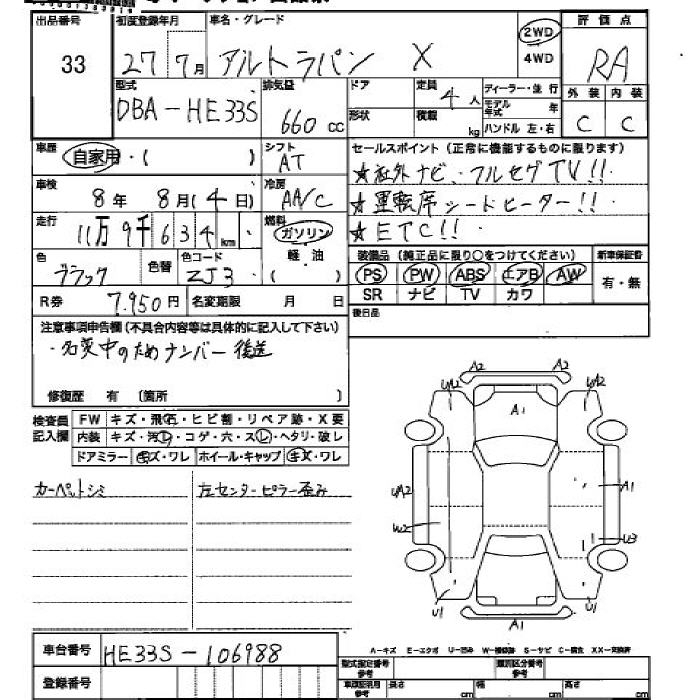 出品番号 初度登録年月 車名・グレード 2WD 4WD 評価点
33 27年 7月 アルトラパン X RA
型式 排気量 ドア 定員 ディーラー・並行 外装 内装
DBA-HE33S 660cc 4人 モデル年式 年 C C
形状 積載 kg ハンドル 左・右
車歴 自家用・( ) シフト AT セールスポイント (正常に機能するものに限ります)
★社外ナビ、フルセグTV!!
車検 8年 8月(4日) 冷房 AA/C ★運転席シートヒーター!!
走行 11万9千634km 燃料 ガソリン ★ETC!!
色 ブラック 色替 色コード ZJ3 軽油 ( ) 装備品 (純正品に限り○をつけてください) 新車保証書
PS PW ABS エアB AW 有・無
SR ナビ TV カワ
R券 7.950円 名変期限 月 日 後日品
注意事項申告欄(不具合内容等は具体的に記入して下さい)
・名変中のためナンバー後送
修復歴 有 〔箇所 〕
検査員記入欄 FW キズ・飛石・ヒビ割・リペア跡・X要
内装 キズ・汚レ・コゲ・穴・スレ・ヘタリ・破レ
ドアミラー キズ・ワレ ホイール・キャップ キズ・ワレ
カーペットシミ 左センターピラー歪み
A2 A2
UA2 UA2
A1
UA2 A1
W2 U3
U1 U1
A1
車台番号 HE33S-106988
A-キズ E-エクボ U-凹み W-補修跡 S-サビ C-腐食 XX-交換済
登録番号 型式指定番号 参考 類別区分番号 参考
車検証明用 参考 長さ cm 幅 cm 高さ cm